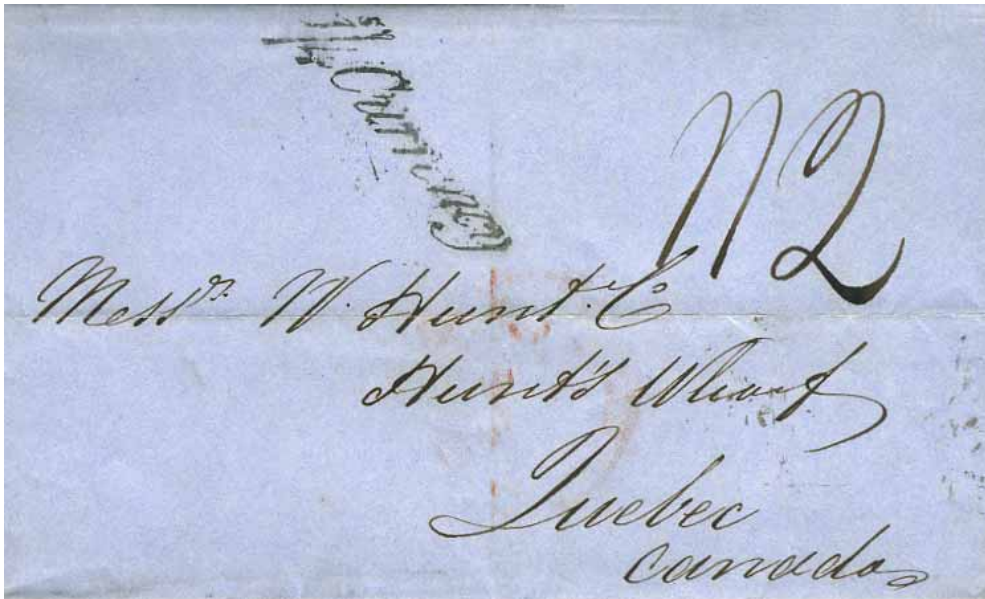 Currency
Messrs. W. Hunt. Co
Hunt's Wharf
Quebec
Canada